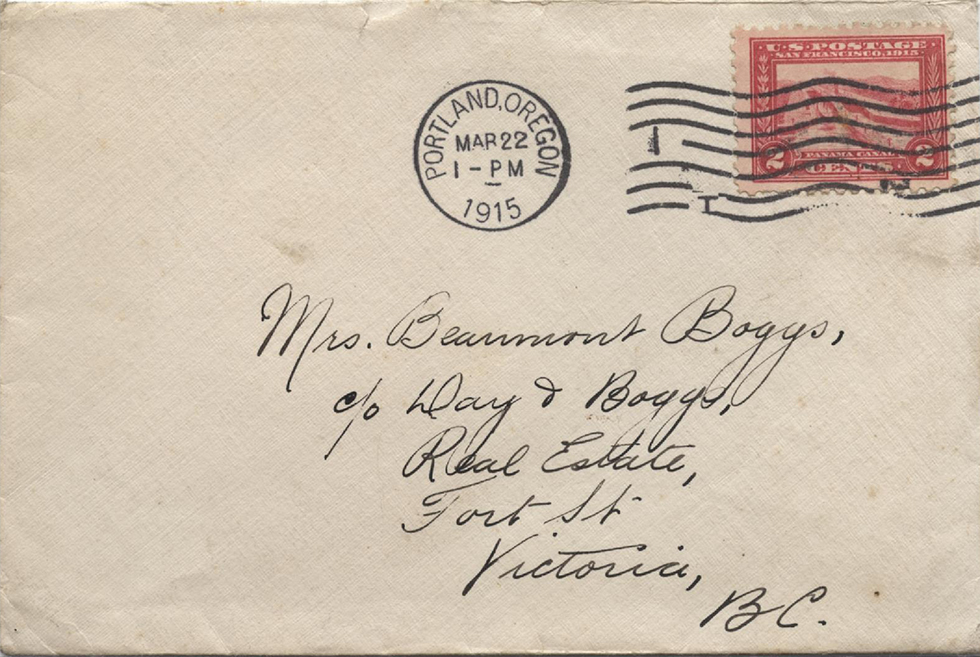 PORTLAND, OREGON
MAR 22
1 - PM
1915
U·S·POSTAGE
SAN FRANCISCO, 1915
PANAMA CANAL
2 CENTS 2
1
I
Mrs. Beaumont Boggs,
c/o Day & Boggs,
Real Estate,
Fort St
Victoria,
B C.